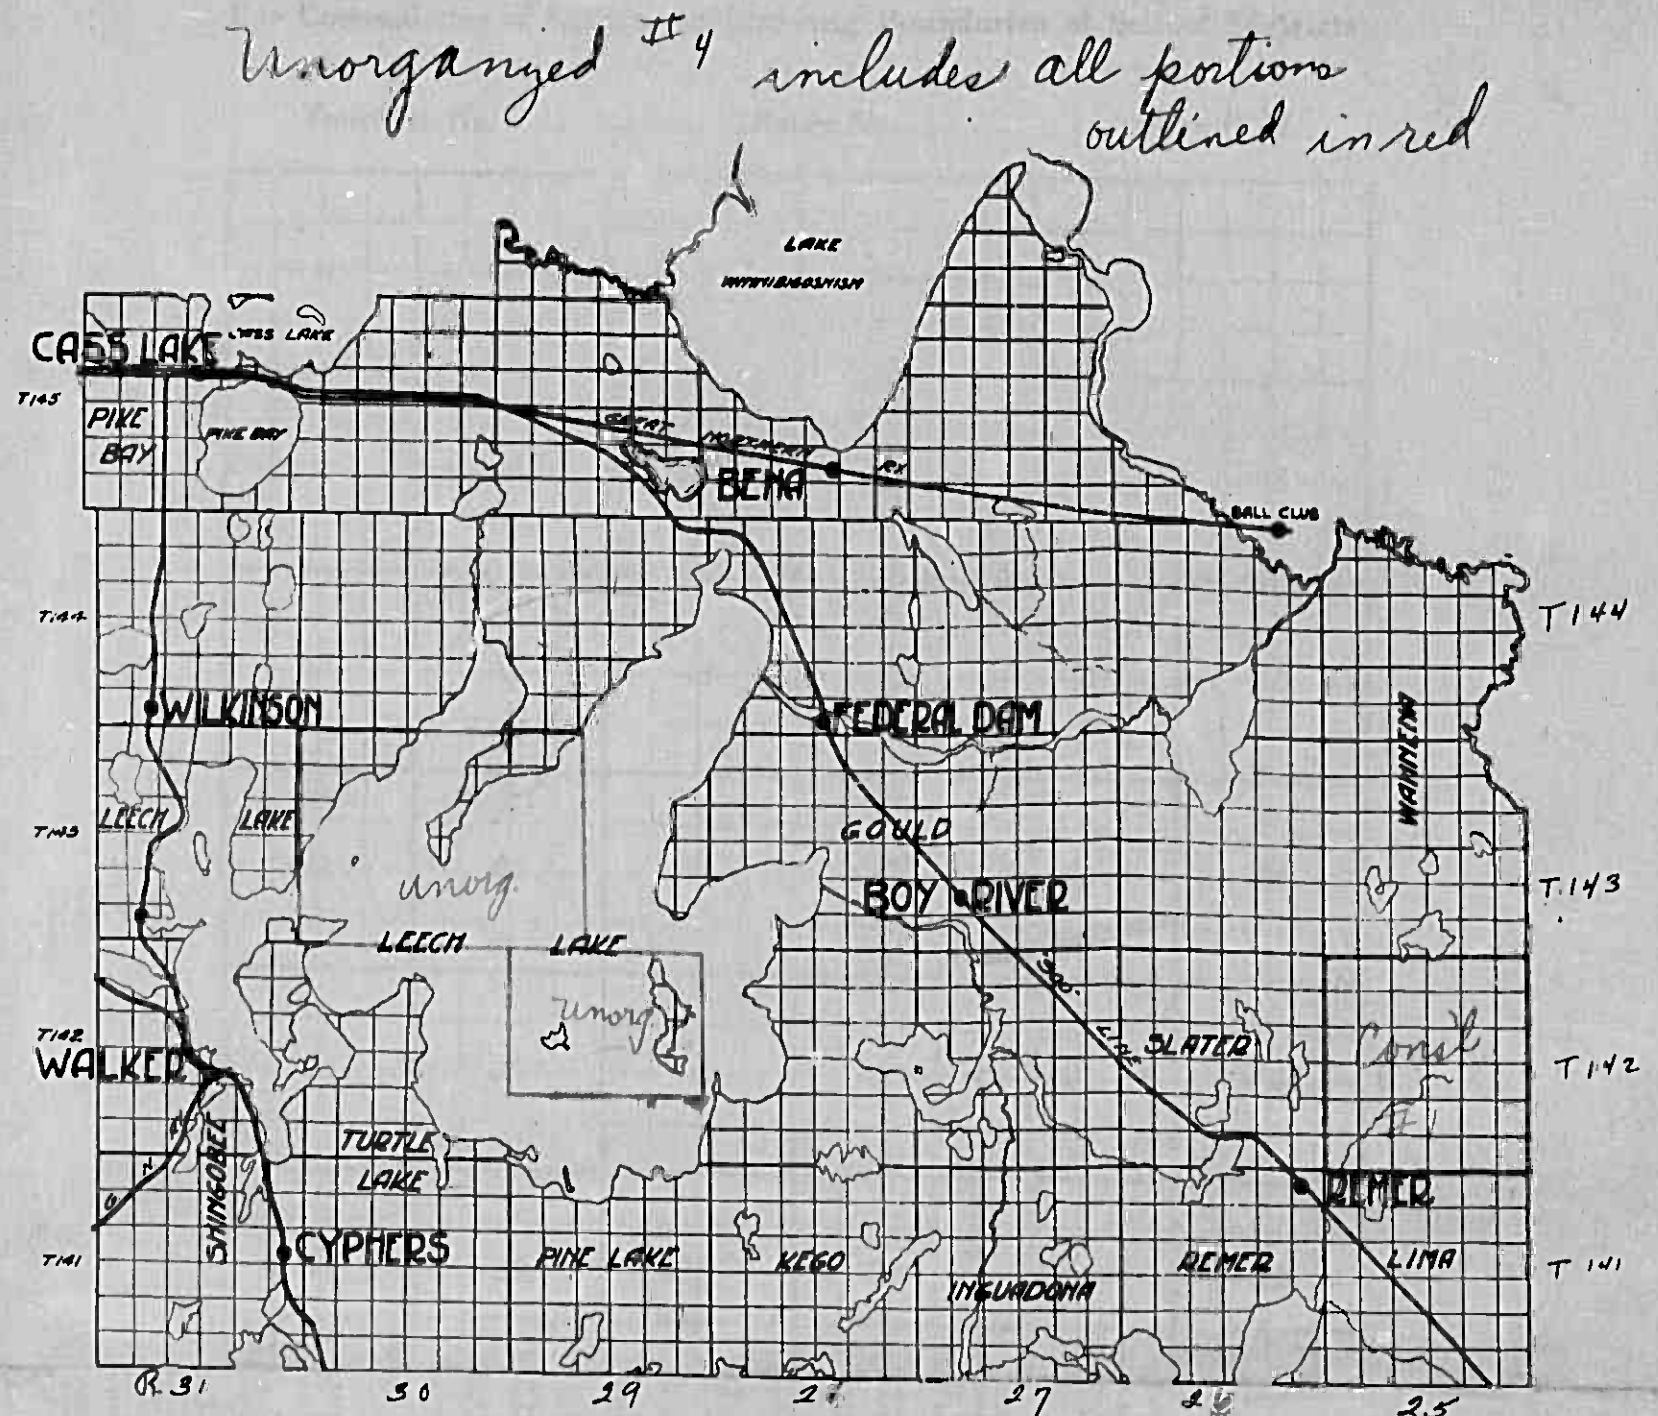 Unorganized #4 includes all portions
outlined in red
LAKE
CASS LAKE
CASS LAKE
T145
PIKE
BAY
PIKE BAY
GREAT NORTHERN RY
BENA
BALL CLUB
T144
T144
WILKINSON
FEDERAL DAM
WAHNENA
LEECH LAKE
T143
GOULD
unorg.
BOY RIVER
T.143
LEECH LAKE
Unorg
SOO LINE
T142
WALKER
SLATER
Cons'l
T142
TURTLE
LAKE
SHINGOBEE
REMER
CYPHERS
T141
PINE LAKE
KEGO
INGUADONA
REMER
LIMA
T 141
R 31 30 29 27 25